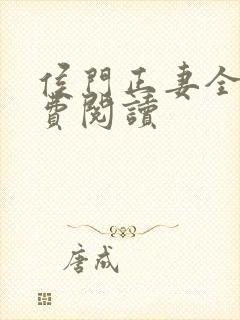 侯門正妻全
費閱讀
唐成